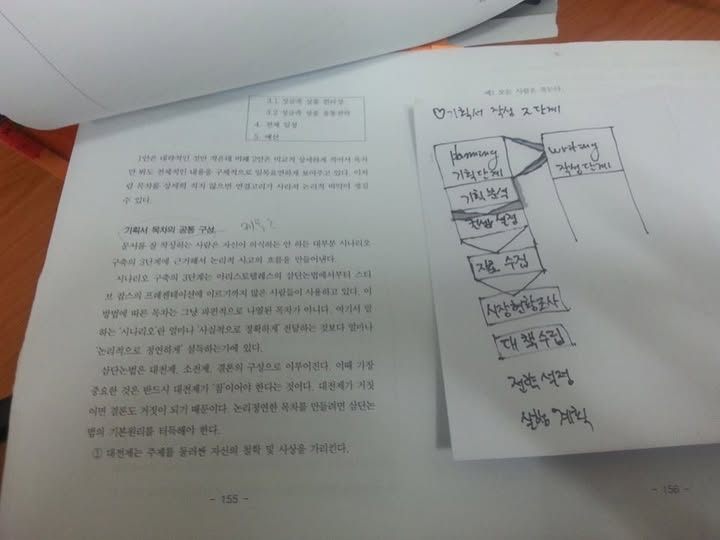 3.1 정금속 상품 판매상
3.2 정금속 상품 유통전략
4. 전체 일정
5. 예산
1안은 대략적인 것만 적은데 비해 2안은 비교적 상세하게 적어서 목차
만 봐도 전체적인 내용을 구체적으로 일목요연하게 보여주고 있다. 이처
럼 목차를 상세히 적지 않으면 연결고리가 사라져 논리적 비약이 생길
수 있다.
기획서 목차의 공통 구성
문서를 잘 작성하는 사람은 자신이 의식하든 안 하든 대부분 시나리오
구축의 3단계에 근거해서 논리적 사고의 흐름을 만들어낸다.
시나리오 구축의 3단계는 아리스토텔레스의 삼단논법에서부터 스티
브 잡스의 프레젠테이션에 이르기까지 많은 사람들이 사용하고 있다. 이
방법에 따른 목차는 그냥 파편적으로 나열된 목차가 아니다. 여기서 말
하는 '시나리오'란 얼마나 '사실적으로 정확하게' 전달하는 것보다 얼마나
'논리적으로 정연하게' 설득하는가에 있다.
삼단논법은 대전제, 소전제, 결론의 구성으로 이루어진다. 이때 가장
중요한 것은 반드시 대전제가 '참'이어야 한다는 것이다. 대전제가 거짓
이면 결론도 거짓이 되기 때문이다. 논리정연한 목차를 만들려면 삼단논
법의 기본원리를 터득해야 한다.
① 대전제는 주제를 둘러싼 자신의 철학 및 사상을 가리킨다.
- 155 -
예) 모든 사람은 죽는다.
♡기획서 작성 2단계
planning
기획단계
기획분석
컨셉 설정
자료 수집
시장현황조사
대책수립
전략 설정
실행 계획
writing
작성단계
- 156 -